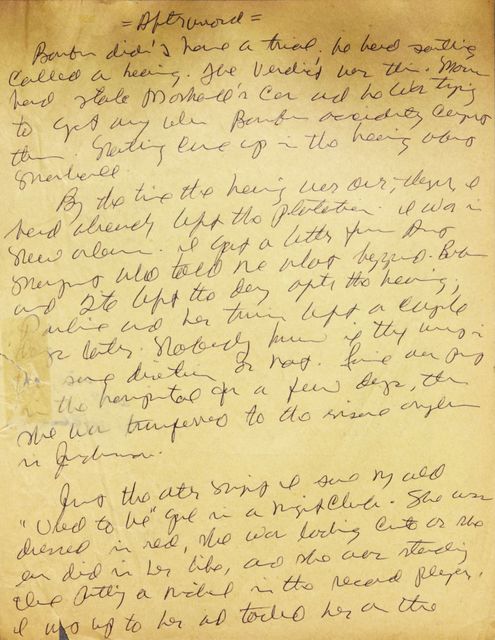 = Afterword =
Bonbon didn't have a trial. he had something
called a hearing. The Verdict was this.
had stole Marshall's Car and he was trying
to get away when Bonbon accidently caught
him. Nothing came up in the hearing about
Marshall.
By the time the hearing was over, I
had already left the plantation. I was in
New Orleans. I got a letter from Aunt
Margaret who told me what happened. Bonbon
and Tite left the day after the hearing,
Pauline and her twins left a couple
later. Nobody knew if they was in
same direction or not. was put
in the hospital for a few days, then
she was transferred to the insane asylum
in Jackson.
Just the other night I saw my old
"Used to be" gal in a nightclub. She was
dressed in red, she was looking cute as she
ever did in her life, and she was standing
putting a nickel in the record player.
I up to her and her on the